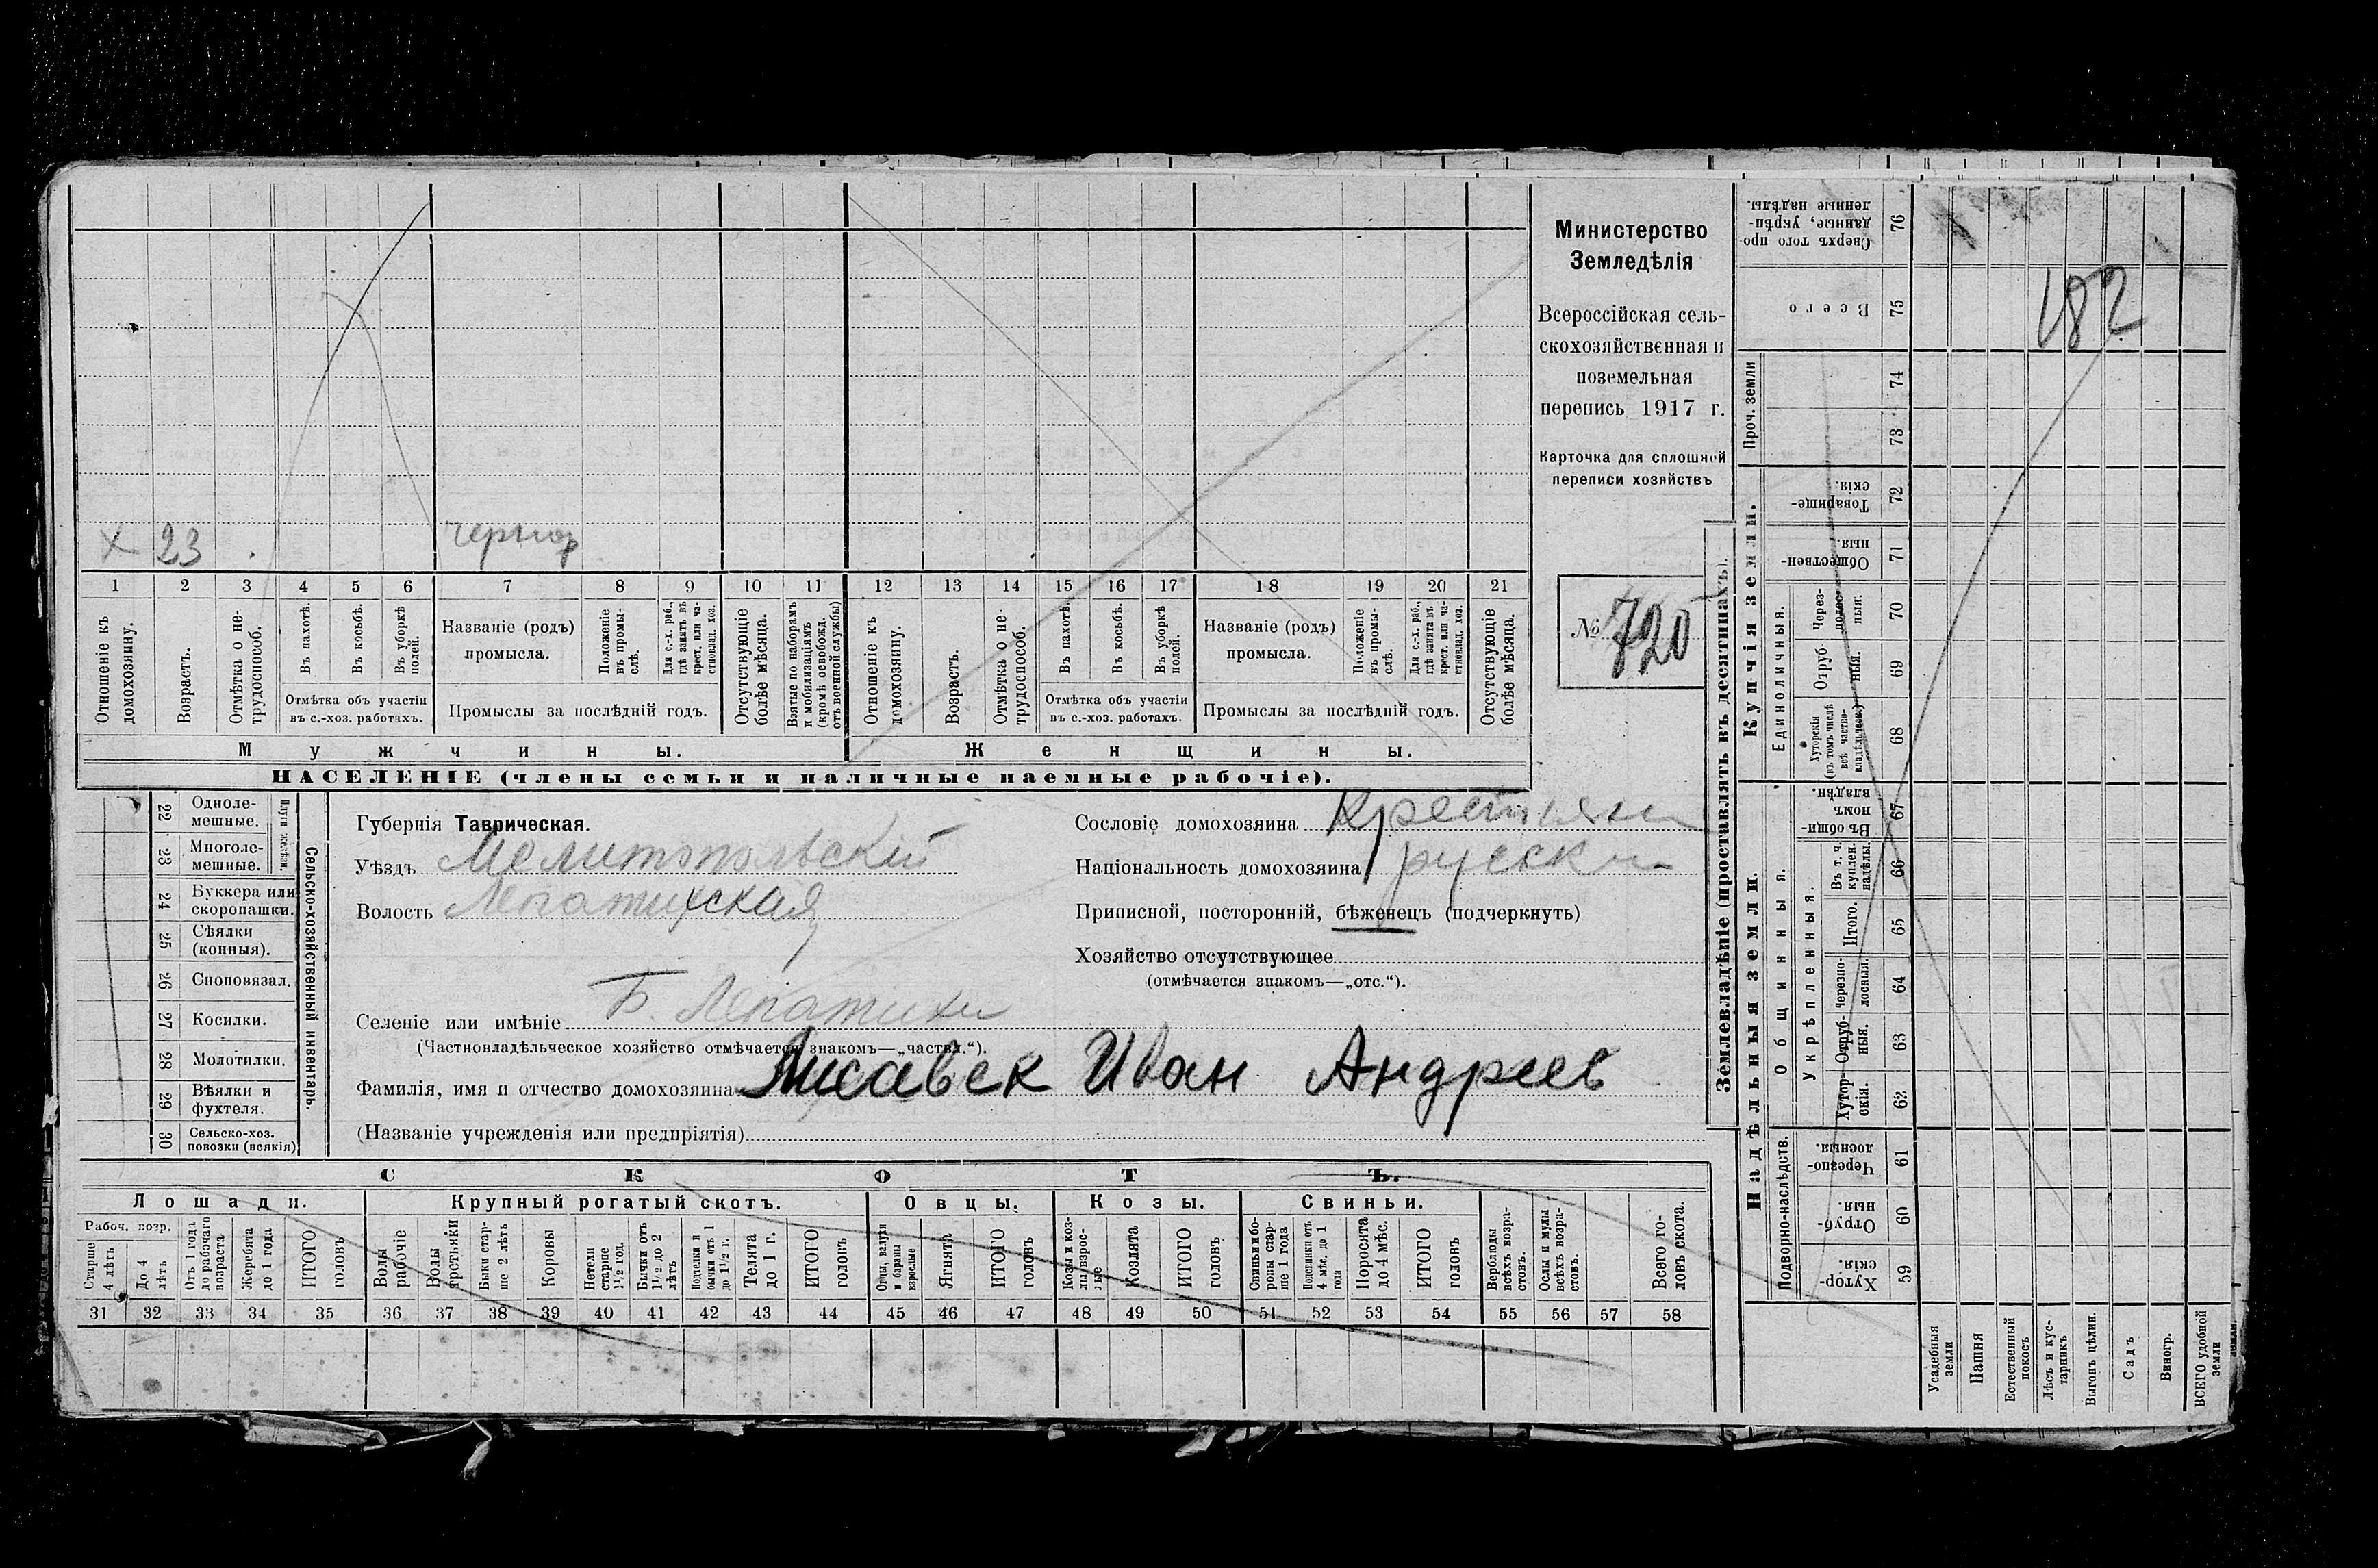 Министерство
Земледѣлія
Всероссійская сель-
скохозяйственная и
поземельная
перепись 1917 г.
Карточка для сплошной
переписи хозяйствъ
№ 720
х 23
1 2 3 4 5 6 7 8 9 10 11 12 13 14 15 16 17 18 19 20 21
Отношеніе къ домохозяину.
Возрастъ.
Отмѣтка о не-трудоспособ.
Въ пахотѣ.
Въ косьбѣ.
Въ уборкѣ полей.
Отмѣтка объ участіи
въ с.-хоз. работахъ.
Названіе (родъ)
промысла.
Положеніе въ промы-слѣ.
Для с.-х. раб., гдѣ занятъ въ крест. или ча-стновлад. хоз.
Промыслы за послѣдній годъ.
Отсутствующіе болѣе мѣсяца.
Взятые по наборамъ и мобилизаціямъ (кромѣ освобожд. отъ военной службы)
Отношеніе къ домохозяину.
Возрастъ.
Отмѣтка о не-трудоспособ.
Въ пахотѣ.
Въ косьбѣ.
Въ уборкѣ полей.
Отмѣтка объ участіи
въ с.-хоз. работахъ.
Названіе (родъ)
промысла.
Положеніе въ промы-слѣ.
Для с.-х. раб., гдѣ занята въ крест. или ча-стновлад. хоз.
Промыслы за послѣдній годъ.
Отсутствующіе болѣе мѣсяца.
Мужчины.
Женщины.
НАСЕЛЕНІЕ (члены семьи и наличные наемные рабочіе).
22 Одноле-мешные.
23 Многоле-мешные.
Плуги желѣзн.
24 Буккера или скоропашки.
25 Сѣялки (конныя).
26 Сноповязал.
27 Косилки.
28 Молотилки.
29 Вѣялки и фухтеля.
30 Сельско-хоз. повозки (всякія)
Сельско-хозяйственный инвентарь.
Губернія Таврическая.
Уѣздъ Мелитопольский
Волость Лепатихская
Селеніе или имѣніе Б. Лепатихи
(Частновладѣльческое хозяйство отмѣчается знакомъ—„частвл.“).
Фамилія, имя и отчество домохозяина Лисавек Иван Андреев
(Названіе учрежденія или предпріятія)
Сословіе домохозяина Крестьянин
Національность домохозяина русский
Приписной, посторонній, бѣженецъ (подчеркнуть)
Хозяйство отсутствующее
(отмѣчается знакомъ—„отс.“).
СКОТЪ.
Лошади.
Крупный рогатый скотъ.
Овцы.
Козы.
Свиньи.
Рабоч. возр.
Старше 4 лѣтъ
До 4 лѣтъ
Отъ 1 года до рабочаго возраста
Жеребята до 1 года
ИТОГО головъ
Волы рабочіе
Волы третьяки
Быки стар-ше 2 лѣтъ
Коровы
Нетели старше 1½ год.
Бычки отъ 1½ до 2 лѣтъ
Подтелки и бычки отъ 1 до 1½ г.
Телята до 1 г.
ИТОГО головъ
Овцы, валухи и бараны взрослые
Ягнята
ИТОГО головъ
Козы и коз-лы взрос-лые
Козлята
ИТОГО головъ
Свиньи и бо-ровы стар-ше 1 года
Подсвинки отъ 4 мѣс. до 1 года
Поросята до 4 мѣс.
ИТОГО головъ
Верблюды всѣхъ возра-стовъ.
Ослы и мулы всѣхъ возра-стовъ.
Всего го-ловъ скота.
31 32 33 34 35 36 37 38 39 40 41 42 43 44 45 46 47 48 49 50 51 52 53 54 55 56 57 58
Землевладѣніе (проставлять въ десятинахъ).
Надѣльныя земли.
Купчія земли.
Проч. земли
Подворно-наслѣдств.
Общинныя.
Укрѣпленныя.
Единоличныя.
Сверхъ того про-данные, укрѣп-ленные надѣлы. 76
Всего 75
74
73
Товарище-скія. 72
Обществен-ныя. 71
Через-полос-ныя. 70
Отруб-ныя. 69
Хуторскія (въ томъ числѣ всѣ частно-владѣльческ.) 68
Въ общи-номъ владѣн. 67
Въ т. ч. куплен. надѣлы. 66
Итого. 65
Черезпо-лосныя. 64
Отруб-ныя. 63
Хутор-скія. 62
Черезпо-лосныя. 61
Отруб-ныя. 60
Хутор-скія. 59
Усадебныя земли
Пашня
Естественный покосъ
Лѣсъ и кус-тарникъ
Выгонъ цѣлин.
Садъ
Виногр.
ВСЕГО удобной земли
182